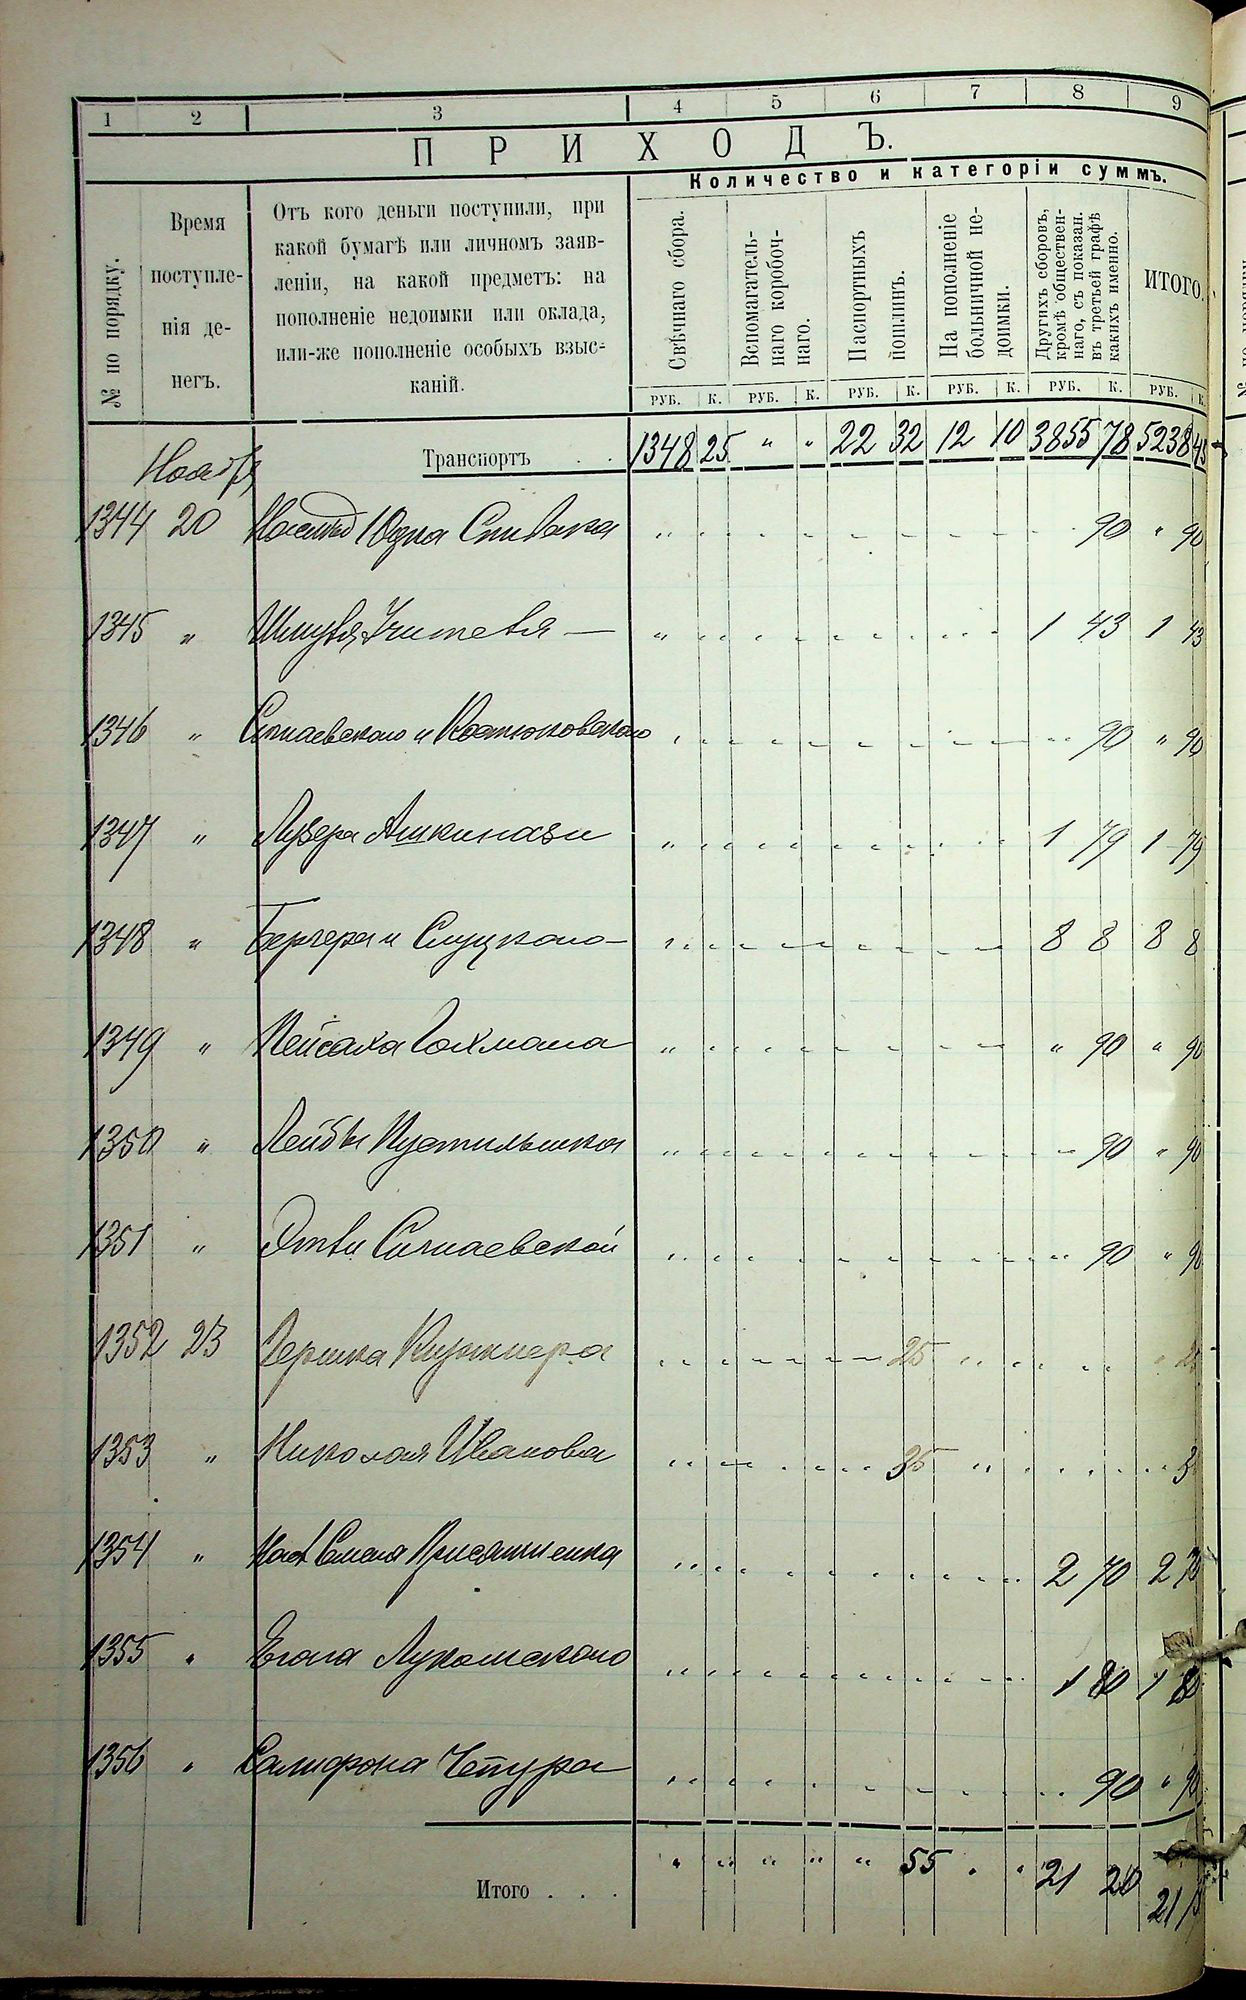 1 2 3 4 5 6 7 8 9
ПРИХОДЪ.
Количество и категоріи суммъ.
№ по порядку.
Время поступле-
нія де-
негъ.
Отъ кого деньги поступили, при
какой бумагѣ или личномъ заяв-
леніи, на какой предметъ: на
пополненіе недоимки или оклада,
или-же пополненіе особыхъ взыс-
каній.
Свѣчнаго сбора.
Вспомагатель-
наго коробоч-
наго.
Паспортныхъ
пошлинъ.
На пополненіе
больничной не-
доимки.
Другихъ сборовъ,
кромѣ обществен-
наго, съ показан.
въ третьей графѣ
какихъ именно.
ИТОГО.
РУБ. К. РУБ. К. РУБ. К. РУБ. К. РУБ. К. РУБ. К.
Транспортъ . . 1348 25 " " 22 32 12 10 3855 78 5238 45
Ноября
1344 20 Юдка Спивака 90 " 90
1345 " Шмуля Учителя — 1 43 1 43
1346 " и Костюковского 90 " 90
1347 " Лузера Ашкинази 1 79 1 79
1348 " Бергера и Слуцкого — 8 8 8 8
1349 " Пейсаха Гохмана " 90 " 90
1350 " Лейбы Пустильника 90 " 90
1351 " 90 " 90
1352 23 Гершка Кушнера 25 25
1353 " Николая Иванова 35
1354 " 2 70 2 70
1355 " Лукомского 1 80 1 80
1356 " 90 " 90
Итого . . . 55 21 20 21